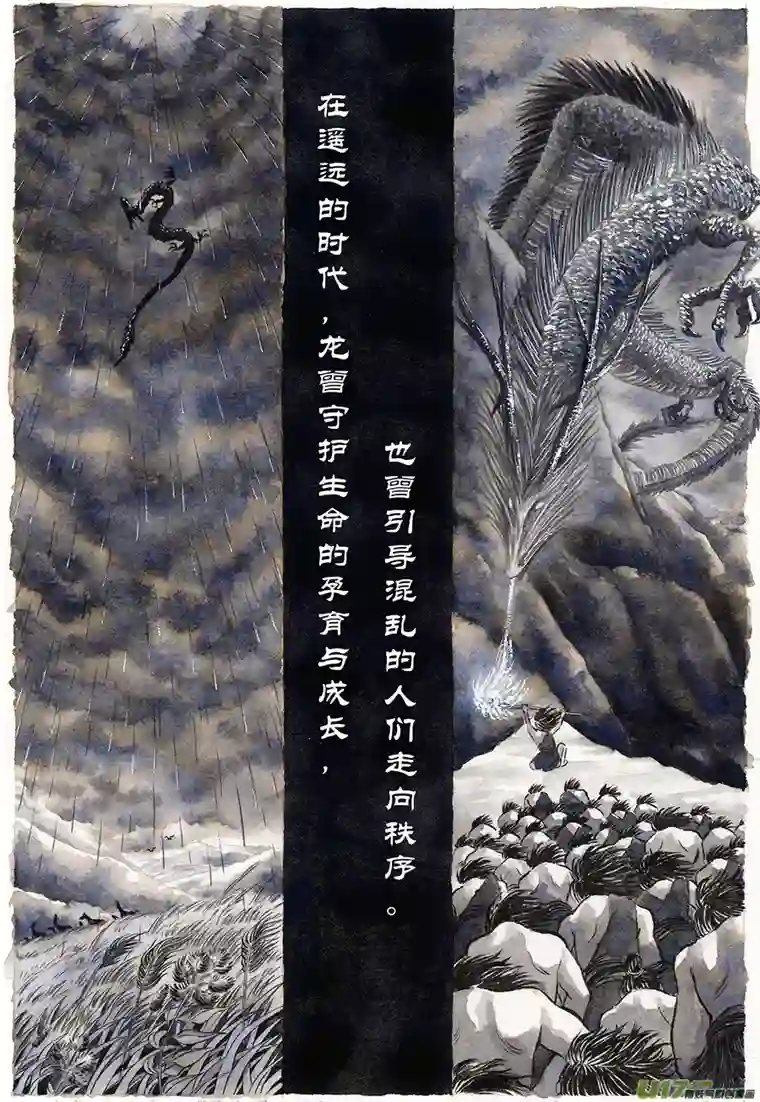 在遥远的时代,龙曾守护生命的孕育与成长,
也曾引导混乱的人们走向秩序。
U17